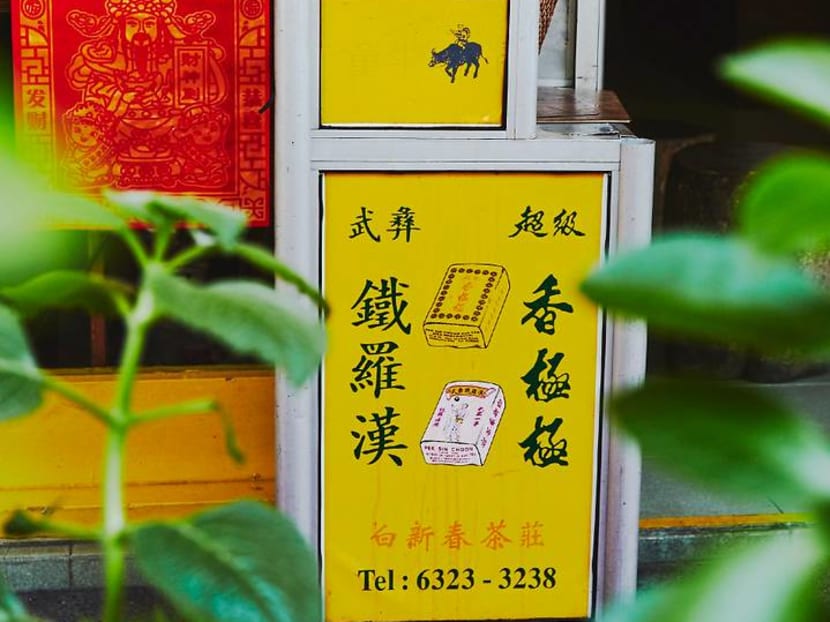 发财
財神到
武彝
超級
鐵羅漢
香極極
PEK SIN CHOON
白新春茶莊
Tel : 6323 - 3238